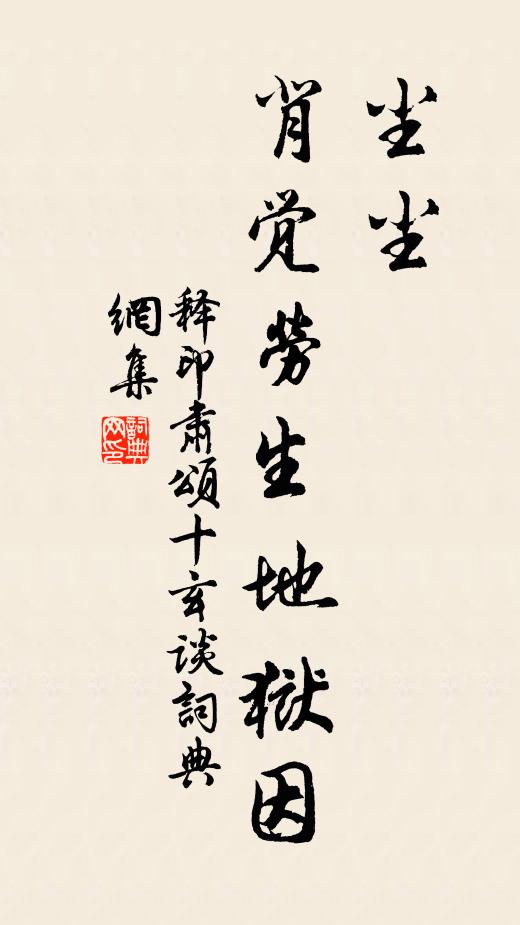 尘尘
肖觉劳生地狱因
释印肃颂十玄谈词典
网集
词典
网印